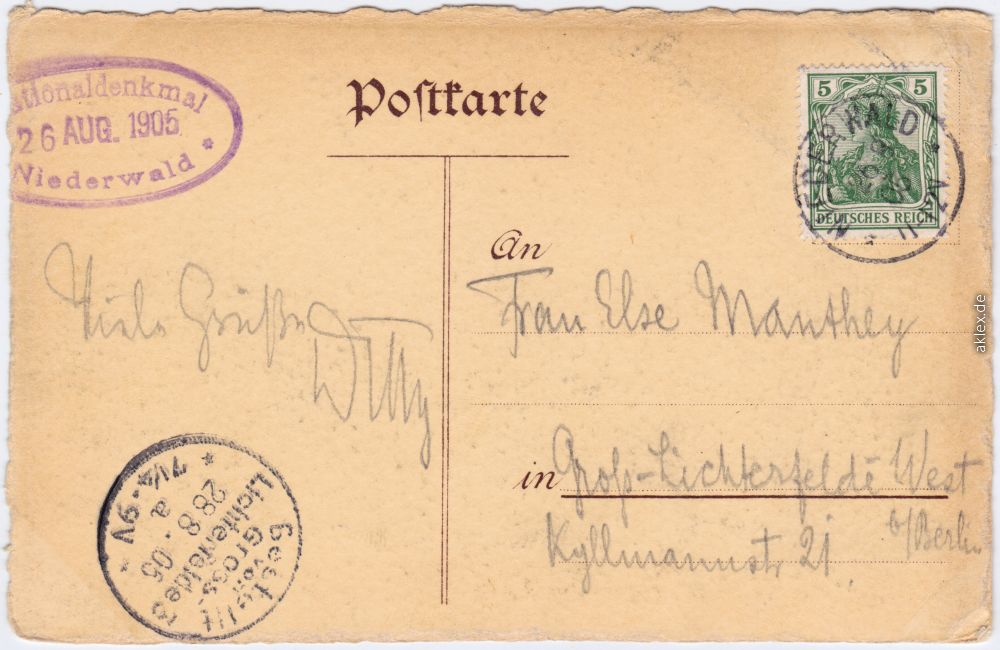 Nationaldenkmal
26 AUG. 1905
Niederwald *
Postkarte
5 5
DEUTSCHES REICH
NIEDERWALD
An
Frau Else Manthey
in Groß-Lichterfelde West
b/Berlin
Kyllmannstr. 21.
Viele Grüße
Willy
Bestellt
vom
Gross-
Lichterfelde
28 8. 05
a
7¼-9V
aklex.de